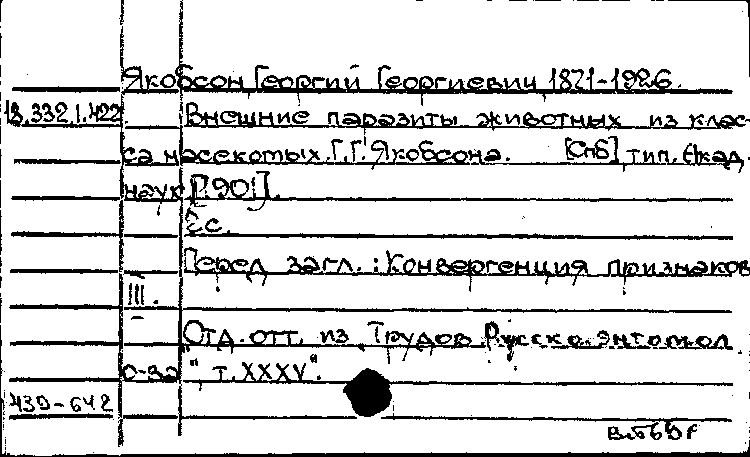 Якобсон Георгий Георгиевич 1871-1926.
18.332.1.422 Внешние паразиты животных из клас-
са насекомых. Г.Г. Якобсона. [СПб] тип. Акад.
наук [1901].
с.
Перед загл.: Конвергенция признаков
III.
"Отд. отт. из Трудов Русско.энтомол
о-ва" т. XXXV".
439-642